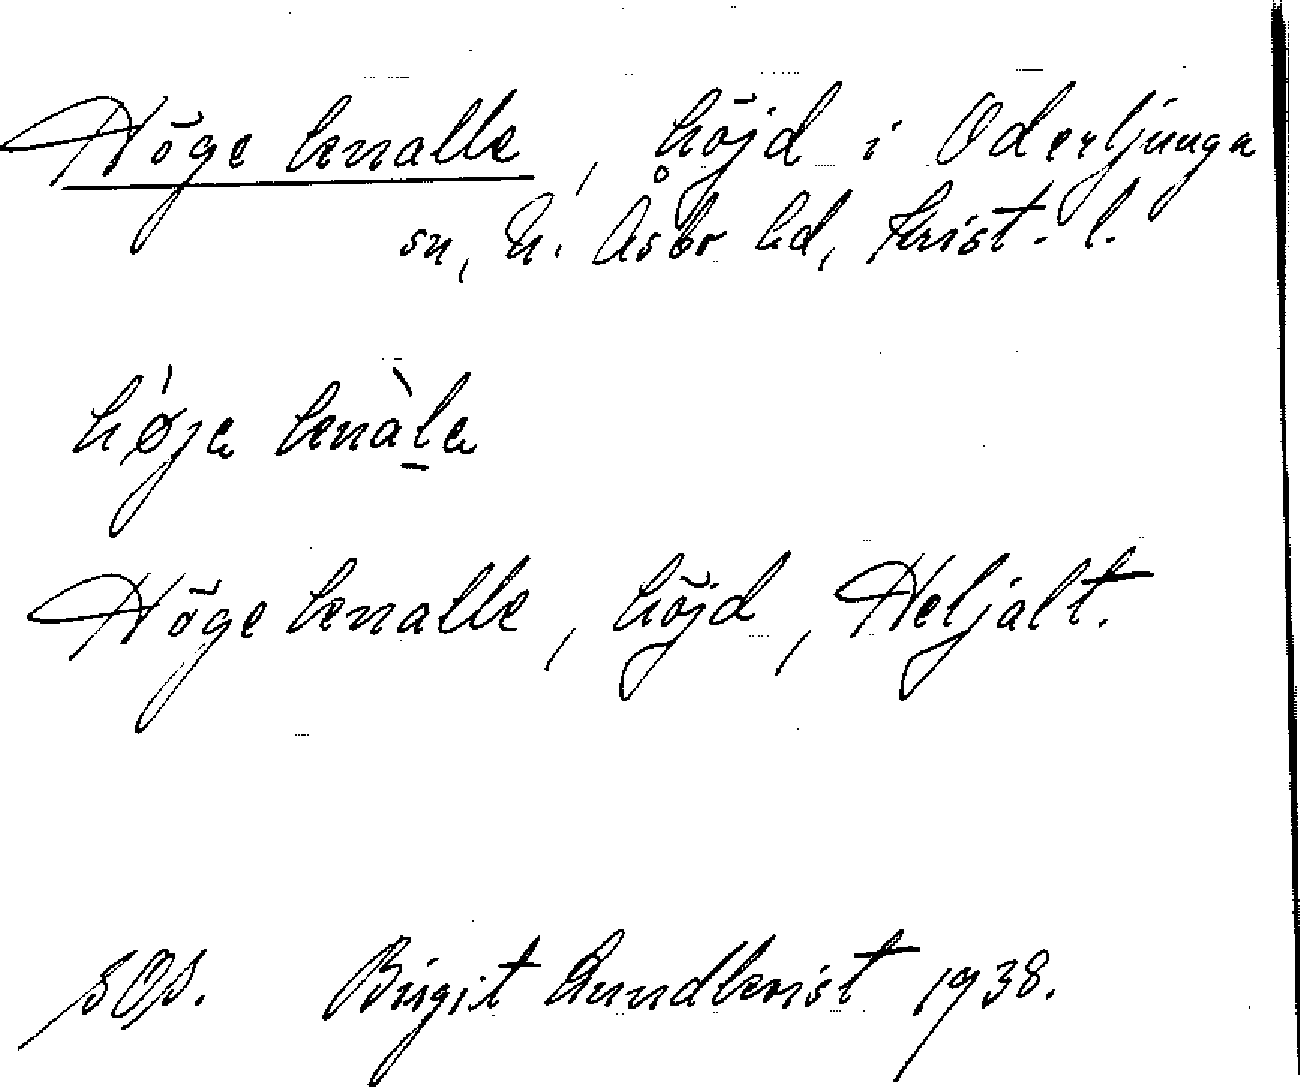 Höge knalle, höjd i Oderljunga
sn, N. Åsbo hd, Krist. l.
hø̀ja knàla
Höge knalle, höjd, Heljalt.
SOS. Birgit Lundkvist 1938.